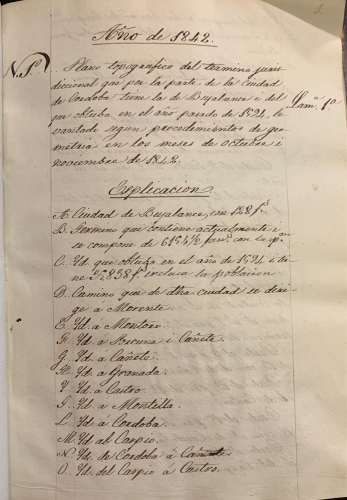 1
Año de 1842.
N. 1º
Plano topografico del termino juris
diccional que por la parte de la Ciudad
de Cordoba tiene la de Bujalance i del
que obtubo en el año pasado de 1524, le
vantado segun procedimientos de geo
metria en los meses de octubre i
noviembre de 1842.
Lamª 1ª
Explicacion.
A. Ciudad de Bujalance, con 128 fˢ
B. Termino que contiene actualmente i
se compone de 6154½ fanˢ con la
C. Yd. que obtubo en el año de 1524 i tie
ne 35,838 f. inclusa la poblacion
D. Camino que de dha ciudad se diri
ge á Morente.
E. Yd. á Montoro.
F. Yd. á Porcuna i Cañete.
G. Yd. á Cañete.
H. Yd. á Granada.
Y. Yd. á Castro.
J. Yd. á Montilla.
L. Yd. á Cordoba.
M. Yd. al Carpio.
N. Yd. de Cordoba á Cañete
O. Yd. del Carpio á Castro.